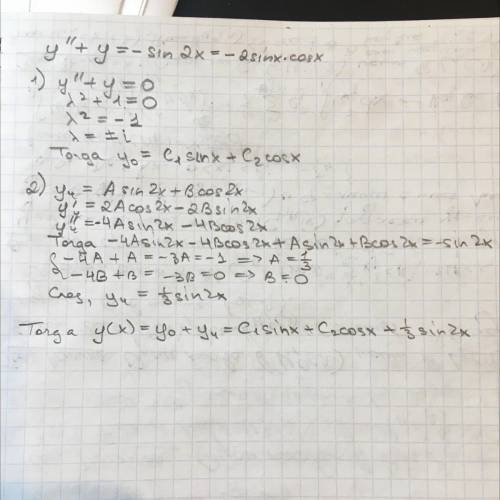 y'' + y = - sin 2x = - 2sinx·cosx
1) y'' + y = 0
λ² + 1 = 0
λ² = -1
λ = ± i
Тогда y₀ = C₁ sinx + C₂ cosx
2) yч = A sin2x + B cos2x
y'ч = 2A cos2x - 2B sin2x
y''ч = -4A sin2x - 4B cos2x
Тогда -4A sin2x - 4B cos2x + A sin2x + B cos2x = - sin 2x
{ -4A + A = -3A = -1 => A = 1/3
{ -4B + B = -3B = 0 => B = 0
След, yч = 1/3 sin2x
Тогда y(x) = y₀ + yч = C₁ sinx + C₂ cosx + 1/3 sin2x